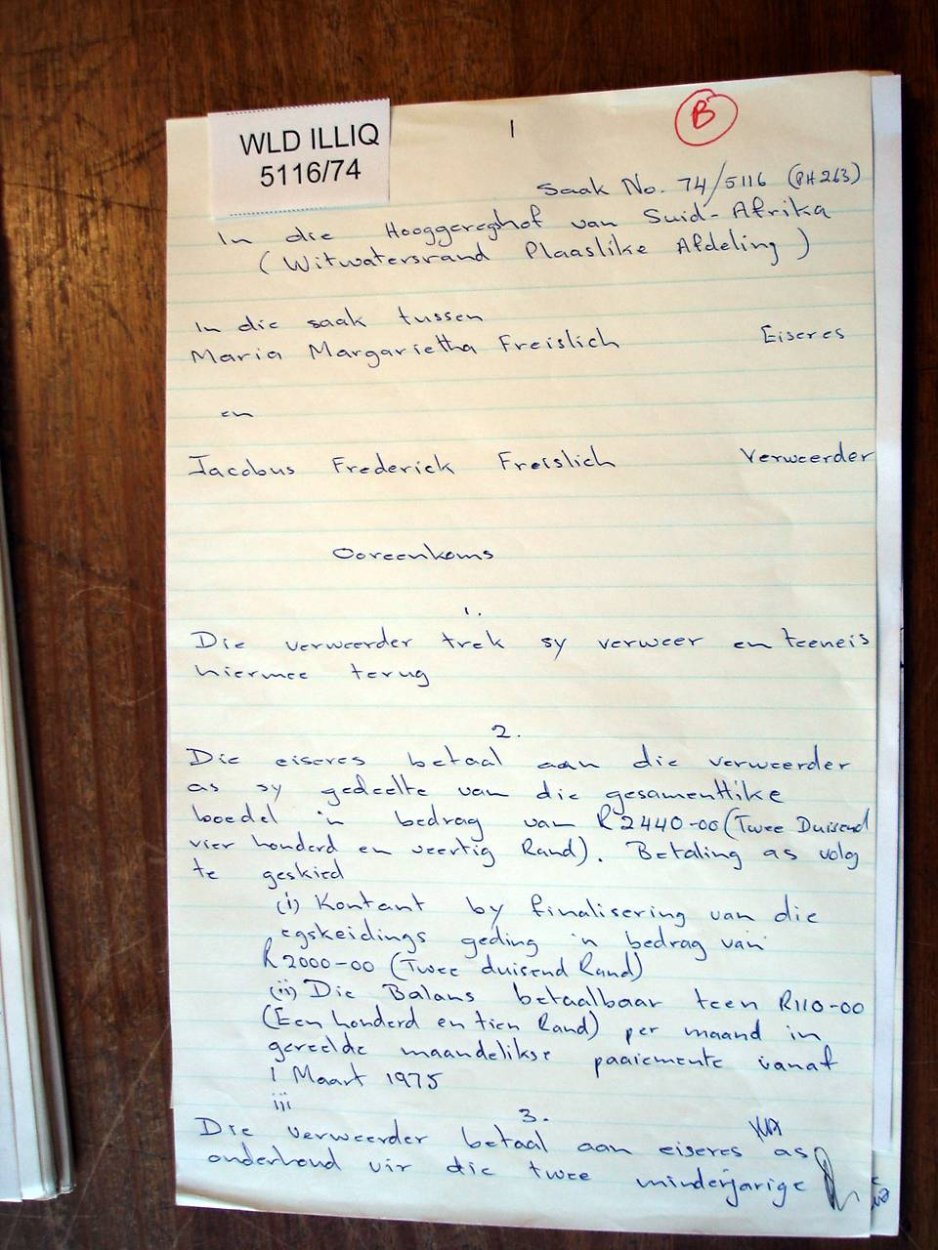 WLD ILLIQ
5116/74
1
B
Saak No. 74/5116 (PH 263)
In die Hooggereghof van Suid-Afrika
(Witwatersrand Plaaslike Afdeling)
In die saak tussen
Maria Margarietha Freislich Eiseres
en
Jacobus Frederick Freislich Verweerder
Ooreenkoms
1.
Die verweerder trek sy verweer en teeneis
hiermee terug
2.
Die eiseres betaal aan die verweerder
as sy gedeelte van die gesamentlike
boedel 'n bedrag van R2440-00 (Twee Duisend
vier honderd en veertig Rand). Betaling as volg
te geskied
(i) Kontant by finalisering van die
egskeidings geding 'n bedrag van
R2000-00 (Twee duisend Rand)
(ii) Die Balans betaalbaar teen R110-00
(Een honderd en tien Rand) per maand in
gereelde maandelikse paaiemente vanaf
1 Maart 1975
iii
3.
Die verweerder betaal aan eiseres as
onderhoud vir die twee minderjarige